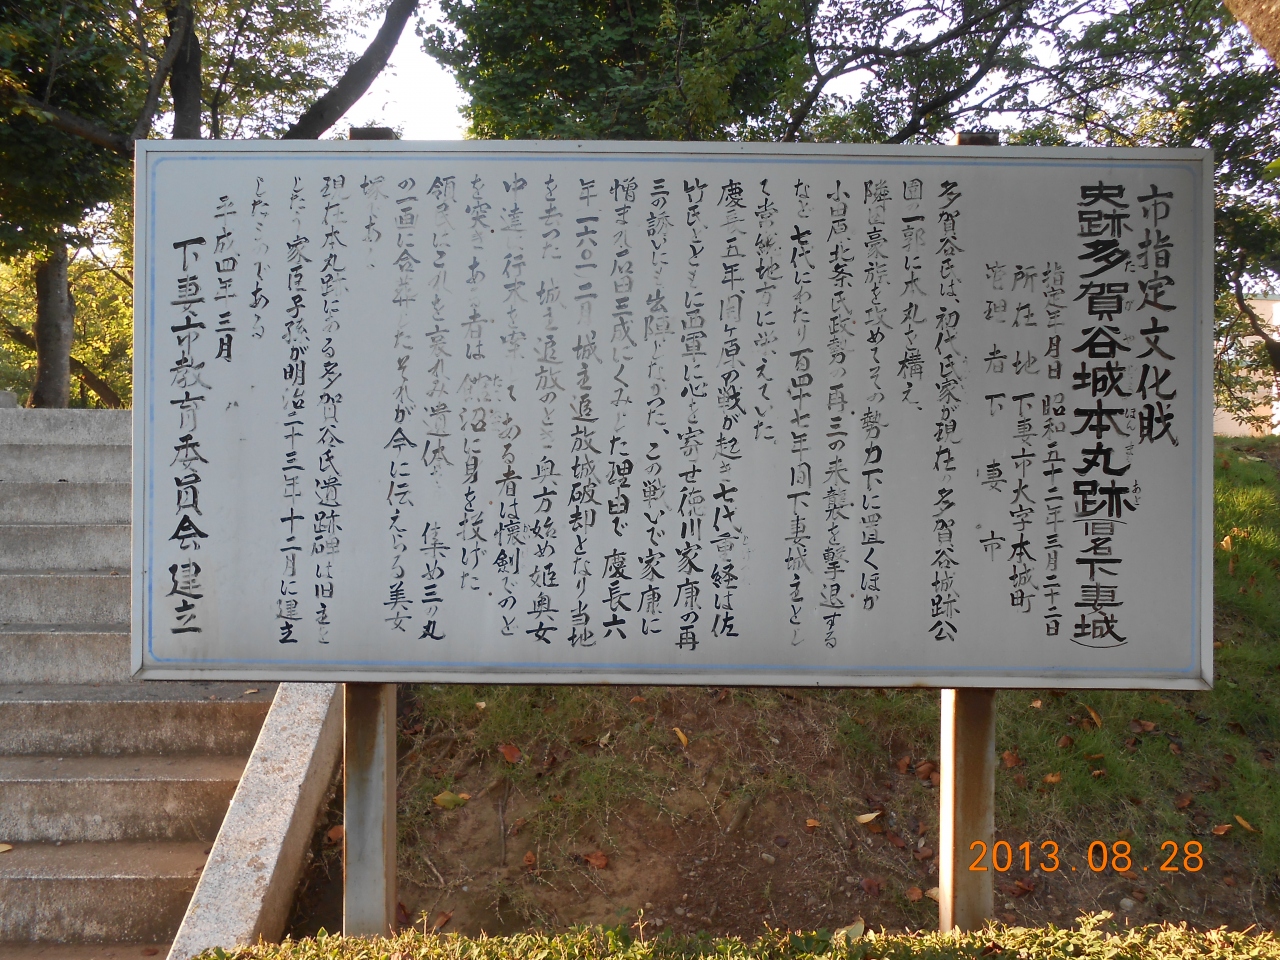 市指定文化財
史跡多賀谷城本丸跡(旧名下妻城)
指定年月日 昭和五十二年三月二十二日
所在地 下妻市大字本城町
管理者 下妻市
多賀谷氏は、初代氏家が現在の多賀谷城跡公
園の一郭に本丸を構え、
隣の豪族を攻めてその勢力下に置くほか
小田、北条氏政勢の再三の来襲を撃退する
など七代にわたり百四十七年間下妻城主とし
て常総地方に栄えていた。
慶長五年、関ヶ原の戦が起き七代重経は佐
竹氏とともに西軍に心を寄せ徳川家康の再
三の誘いにも出陣しなかった、この戦いで家康に
憎まれ石田三成にくみした理由で慶長六
年一六〇一二月城主追放城破却となり当地
を去った 城主追放のとき奥方始め姫奥女
中達に行末を案じて ある者は懐剣でのど
を突き ある者は 館沼に身を投げた
領民はこれを哀れみ遺体 集め三の丸
の一画に合葬したそれが今に伝えらる美女
塚
現在本丸跡にある多賀谷氏遺跡碑は旧主を
した う家臣子孫が明治二十三年十二月に建立
したものである
平成四年三月
下妻市教育委員会建立
2013.08.28